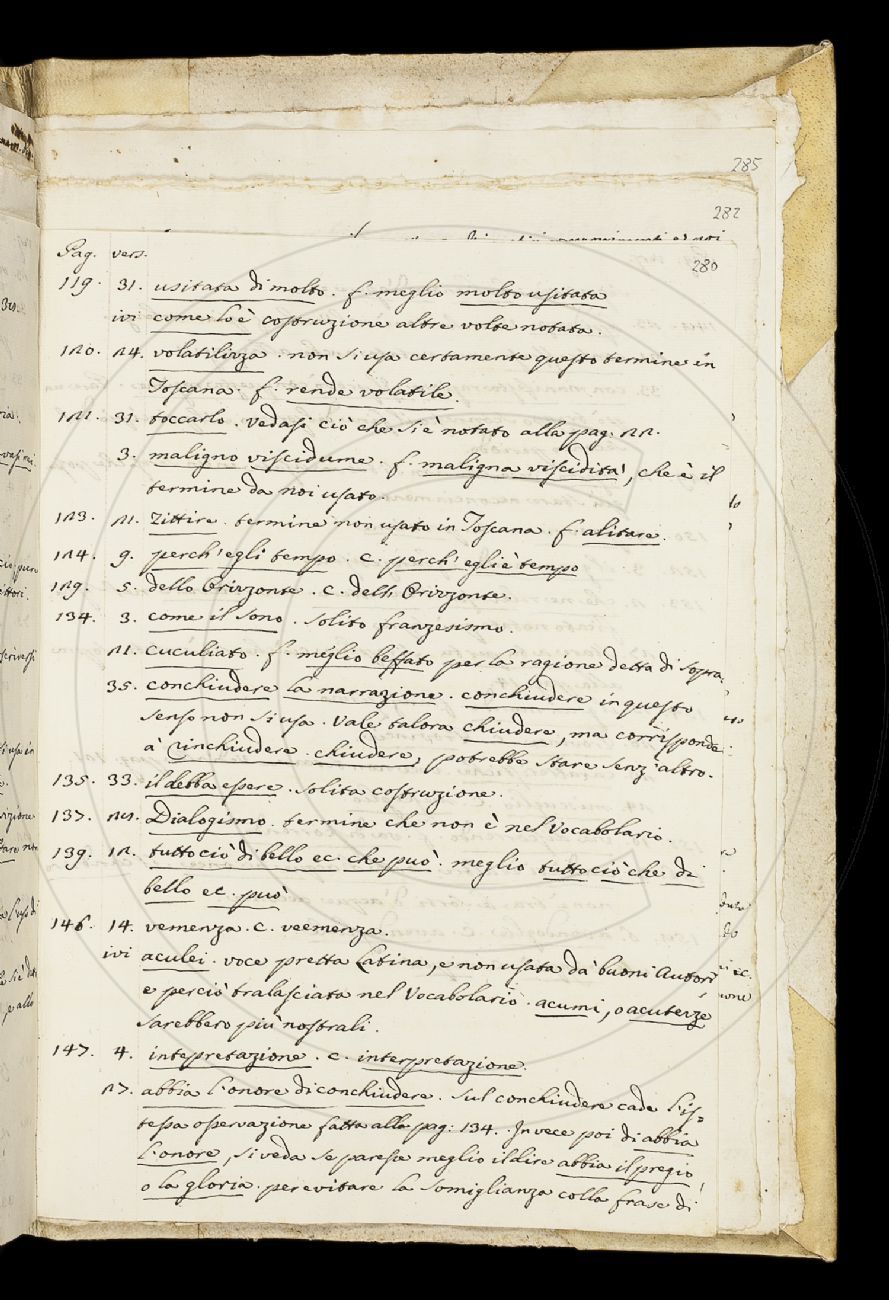 285
282
280
Pag. vers.
119. 31. usitata di molto. f. meglio molto usitata
ivi come lo è costruzione altre volte notata.
120. 24. volatilizza. non si usa certamente questo termine in
Toscana. f. rende volatile.
121. 31. toccarlo. Vedasi ciò che si è notato alla pag. 22.
3. maligno viscidume. f. maligna viscidità, che è il
termine da noi usato.
123. 21. Zittire. termine non usato in Toscana. f. alitare.
124. 9. perch'egli tempo. c. perch'egli è tempo
129. 5. dello Orizzonte. c. dell'Orizzonte.
134. 3. come il sono. solito franzesismo.
21. cuculiato. f. meglio beffato per la ragione detta di sopra.
35. conchiudere la narrazione. conchiudere in questo
senso non si usa. Vale talora chiudere, ma corrisponde
à rinchiudere. chiudere, potrebbe stare senz'altro.
135. 33. il debba essere. solita costruzione.
137. 29. Dialogismo. termine che non è nel Vocabolario.
139. 12. tutto ciò di bello ec. che può. meglio tutto ciò che di
bello ec. può
146. 14. vemenza. c. veemenza.
ivi aculei. voce pretta Latina, e non usata dà buoni Autori
e perciò tralasciata nel Vocabolario. acumi, o acutezze
sarebbero più nostrali.
147. 4. intepretazione. c. interpretazione.
27. abbia l'onore di conchiudere. sul conchiudere cade l'is-
tessa osservazione fatta alla pag: 134. In vece poi di abbia
l'onore, si veda se paresse meglio il dire abbia il pregio,
o la gloria. per evitare la somiglianza colla frase di